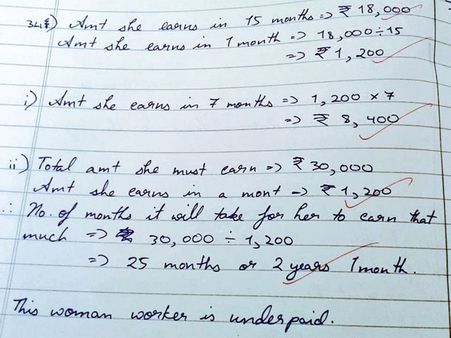 34. i) Amt she earns in 15 months => ₹ 18,000
Amt she earns in 1 month => 18,000÷15
=> ₹ 1,200
i) Amt she earns in 7 months => 1,200 × 7
=> ₹ 8,400
ii) Total amt she must earn => ₹ 30,000
Amt she earns in a mont => ₹ 1,200
∴ No. of months it will take for her to earn that
much => 30,000 ÷ 1,200
=> 25 months or 2 years 1 month.
This woman worker is underpaid.